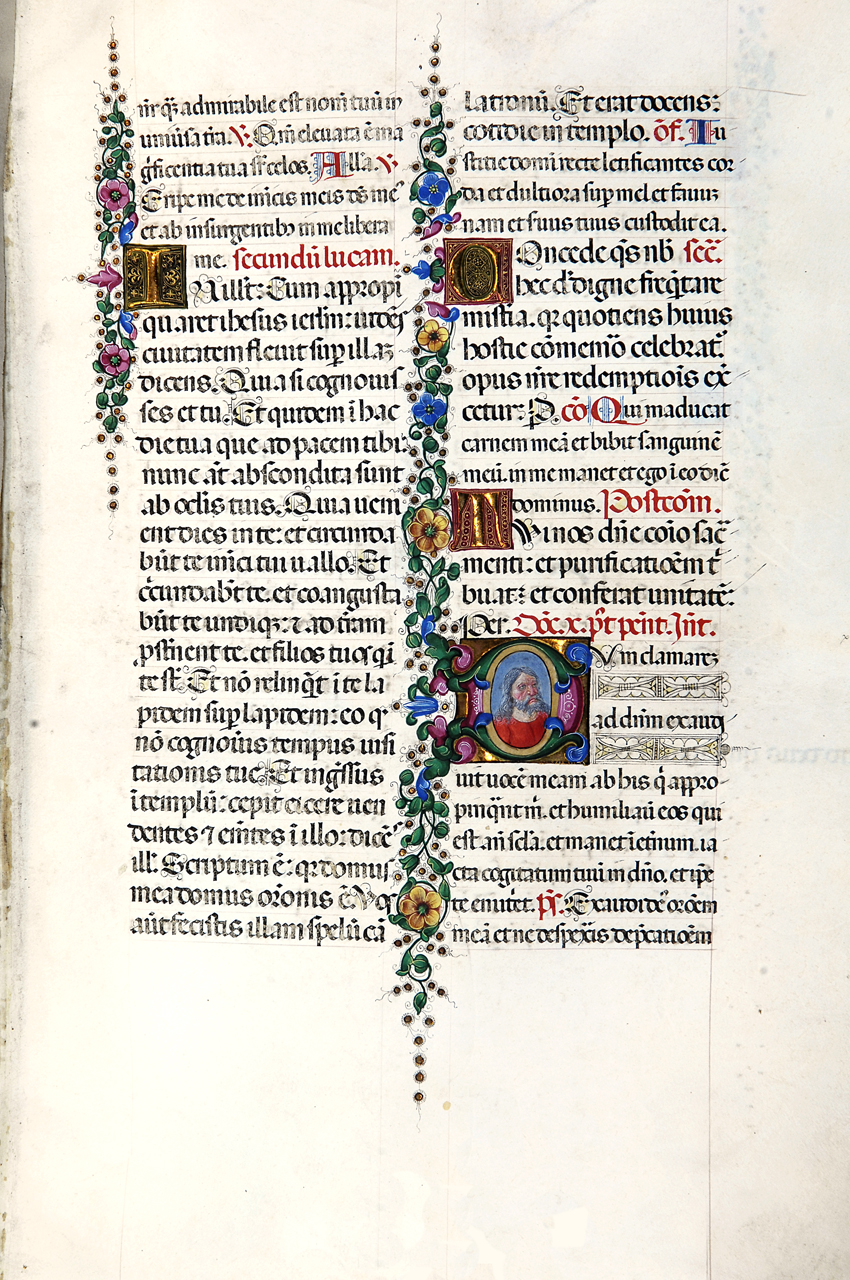 nr̄ qȝ admirabile est nom̄ tuū in
uniūsa tr̄a. ℣. Qm̄ eleuata ē ma
gn̄ficentia tua sr̄ celos. Alla. ℣.
Eripe me de inīcis meis ds̄ me᷒
et ab insurgentibȝ in me libera
me. secundū lucam.
IN illo t̄: Cum appropī
quaret ihesus ierlm̄: uidēs
ciuitatem fleuit suꝑ illaȝ
dicens. Quia si cognouis
ses et tu. Et quidem ī hac
die tua que ad pacem tibi:
nunc āt abscondita sunt
ab oc̄lis tuis. Quia ueni
ent dies in te: et circumda
būt te inīci tui uallo. Et
cr̄cundabūt te. et coangusta
būt te undiqȝ: ⁊ ad tr̄am
ꝓstn̄ent te. et filios tuos qi
te st̄. Et nō relinq̄t ī te la
pidem suꝑ lapidem: eo ꝙ
nō cognouis tempus uisi
tationis tue. Et ingr̄ssus
ī templū: cepit eicere uen
dentes ⁊ em̄tes ī illo: dicē᷒
ill̄. Scriptum ē: qr̄ domus
mea domus orōnis ē. Vos
aūt fecistis illam spelūcā
latronū. Et erat docens:
cottidie in templo. of̄. Iu
sticie domī recte letificantes cor-
da et dultiora suꝑ mel et fauuȝ
nam et suus tuus custodit ea.
COncede q̄s nb̄ sec̄.
hec dn̄e digne freq̄tare
mistīa. qȝ quotiens huius
hostie cōmemō celebrat̄.
opus nr̄e redemptiōis ex̄
cetur: P. cō Qui māducat
carnem meā et bibit sanguinē
meū. in me manet et ego ī eo dic̄
dominus. Postcom̄.
TVi nos dn̄e coīo sac̄
menti: et purificatiōem t̄
buat: et conferat unitatē:
Per. Dōc. x. pt̄ pent̄. Int̄.
DVm clamareȝ
ad dn̄m exaudi
uit uocē meam ab his q̄ appro-
pinq̄nt m̄. et humiliauī eos qui
est an̄ sc̄la. et manet ī et̄num. ia
cta cogitatum tuū in dn̄o. et ip̄e
te enut̄et. ps̄. Exaudi de᷒ orōem
meā et ne despexis dep̄catiōem